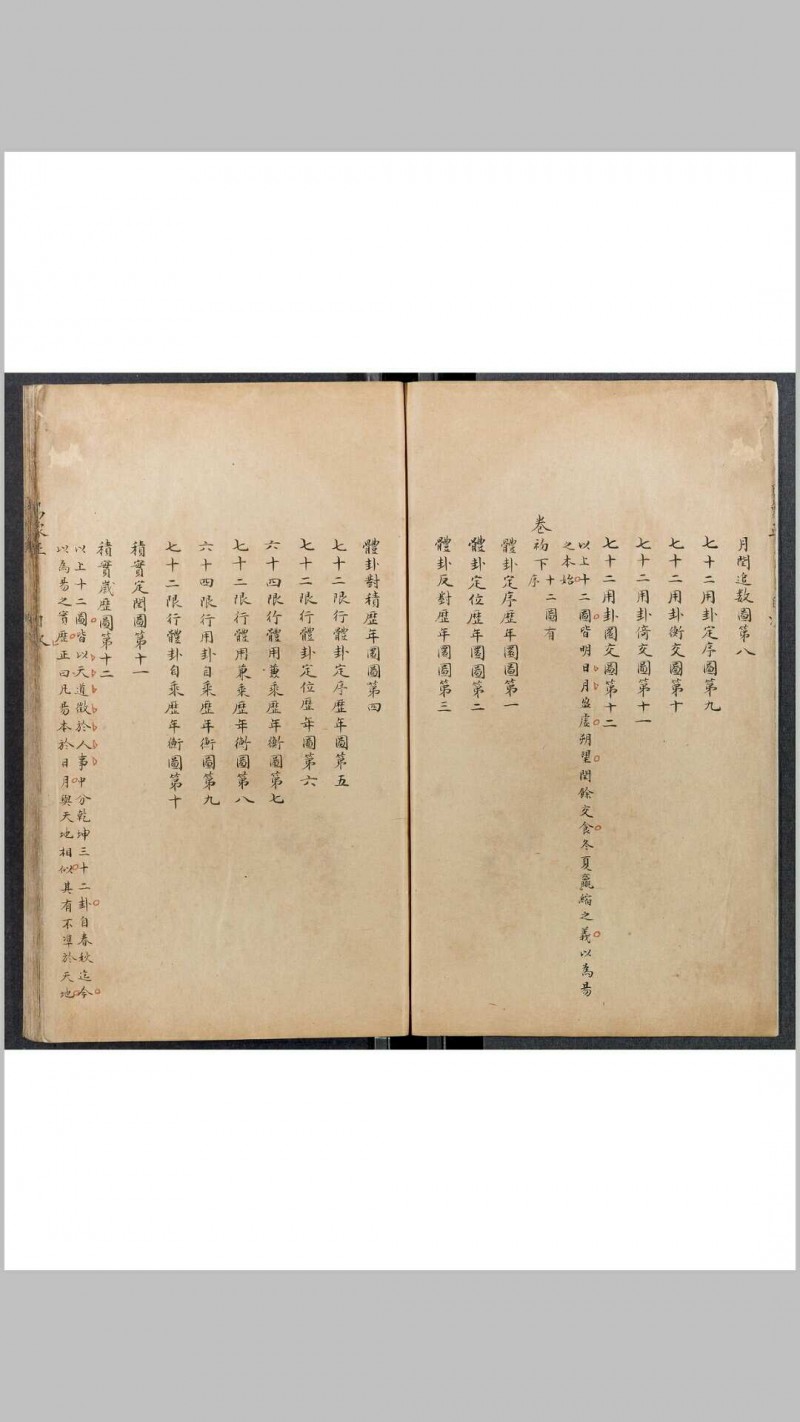 月閏追數圖第八
七十二用卦定序圖第九
七十二用卦衡交圖第十
七十二用卦倚交圖第十一
七十二用卦圜交圖第十二
以上十二圖皆明日月盈虛朔望閏餘交食冬夏嬴縮之義以為昜
之本始
卷初下
十二圖有
序
體卦定序歷年圜圖第一
體卦定位歷年圜圖第二
體卦反對歷年圜圖第三
體卦對積歷年圜圖第四
七十二限行體卦定序歷年圖第五
七十二限行體卦定位歷年圖第六
六十四限行體用兼乘歷年衡圖第七
七十二限行體用兼乘歷年衡圖第八
六十四限行用卦自乘歷年衡圖第九
七十二限行體卦自乘歷年衡圖第十
積實定閏圖第十一
積實歲歷圖第十二
以上十二圖皆以天道徵於人事中分乾坤三十二卦自春秋迄今
以為昜之實歷正曰凡昜本於日月與天地相似其有不準於天地